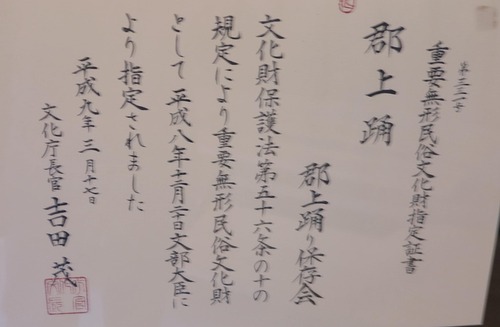 重要無形民俗文化財指定証書
郡上踊
郡上踊り保存会
文化財保護法第五十六条の十の
規定により重要無形民俗文化財
として平成八年十二月二十日文部大臣に
より指定されました
平成九年三月十七日
文化庁長官 吉田茂